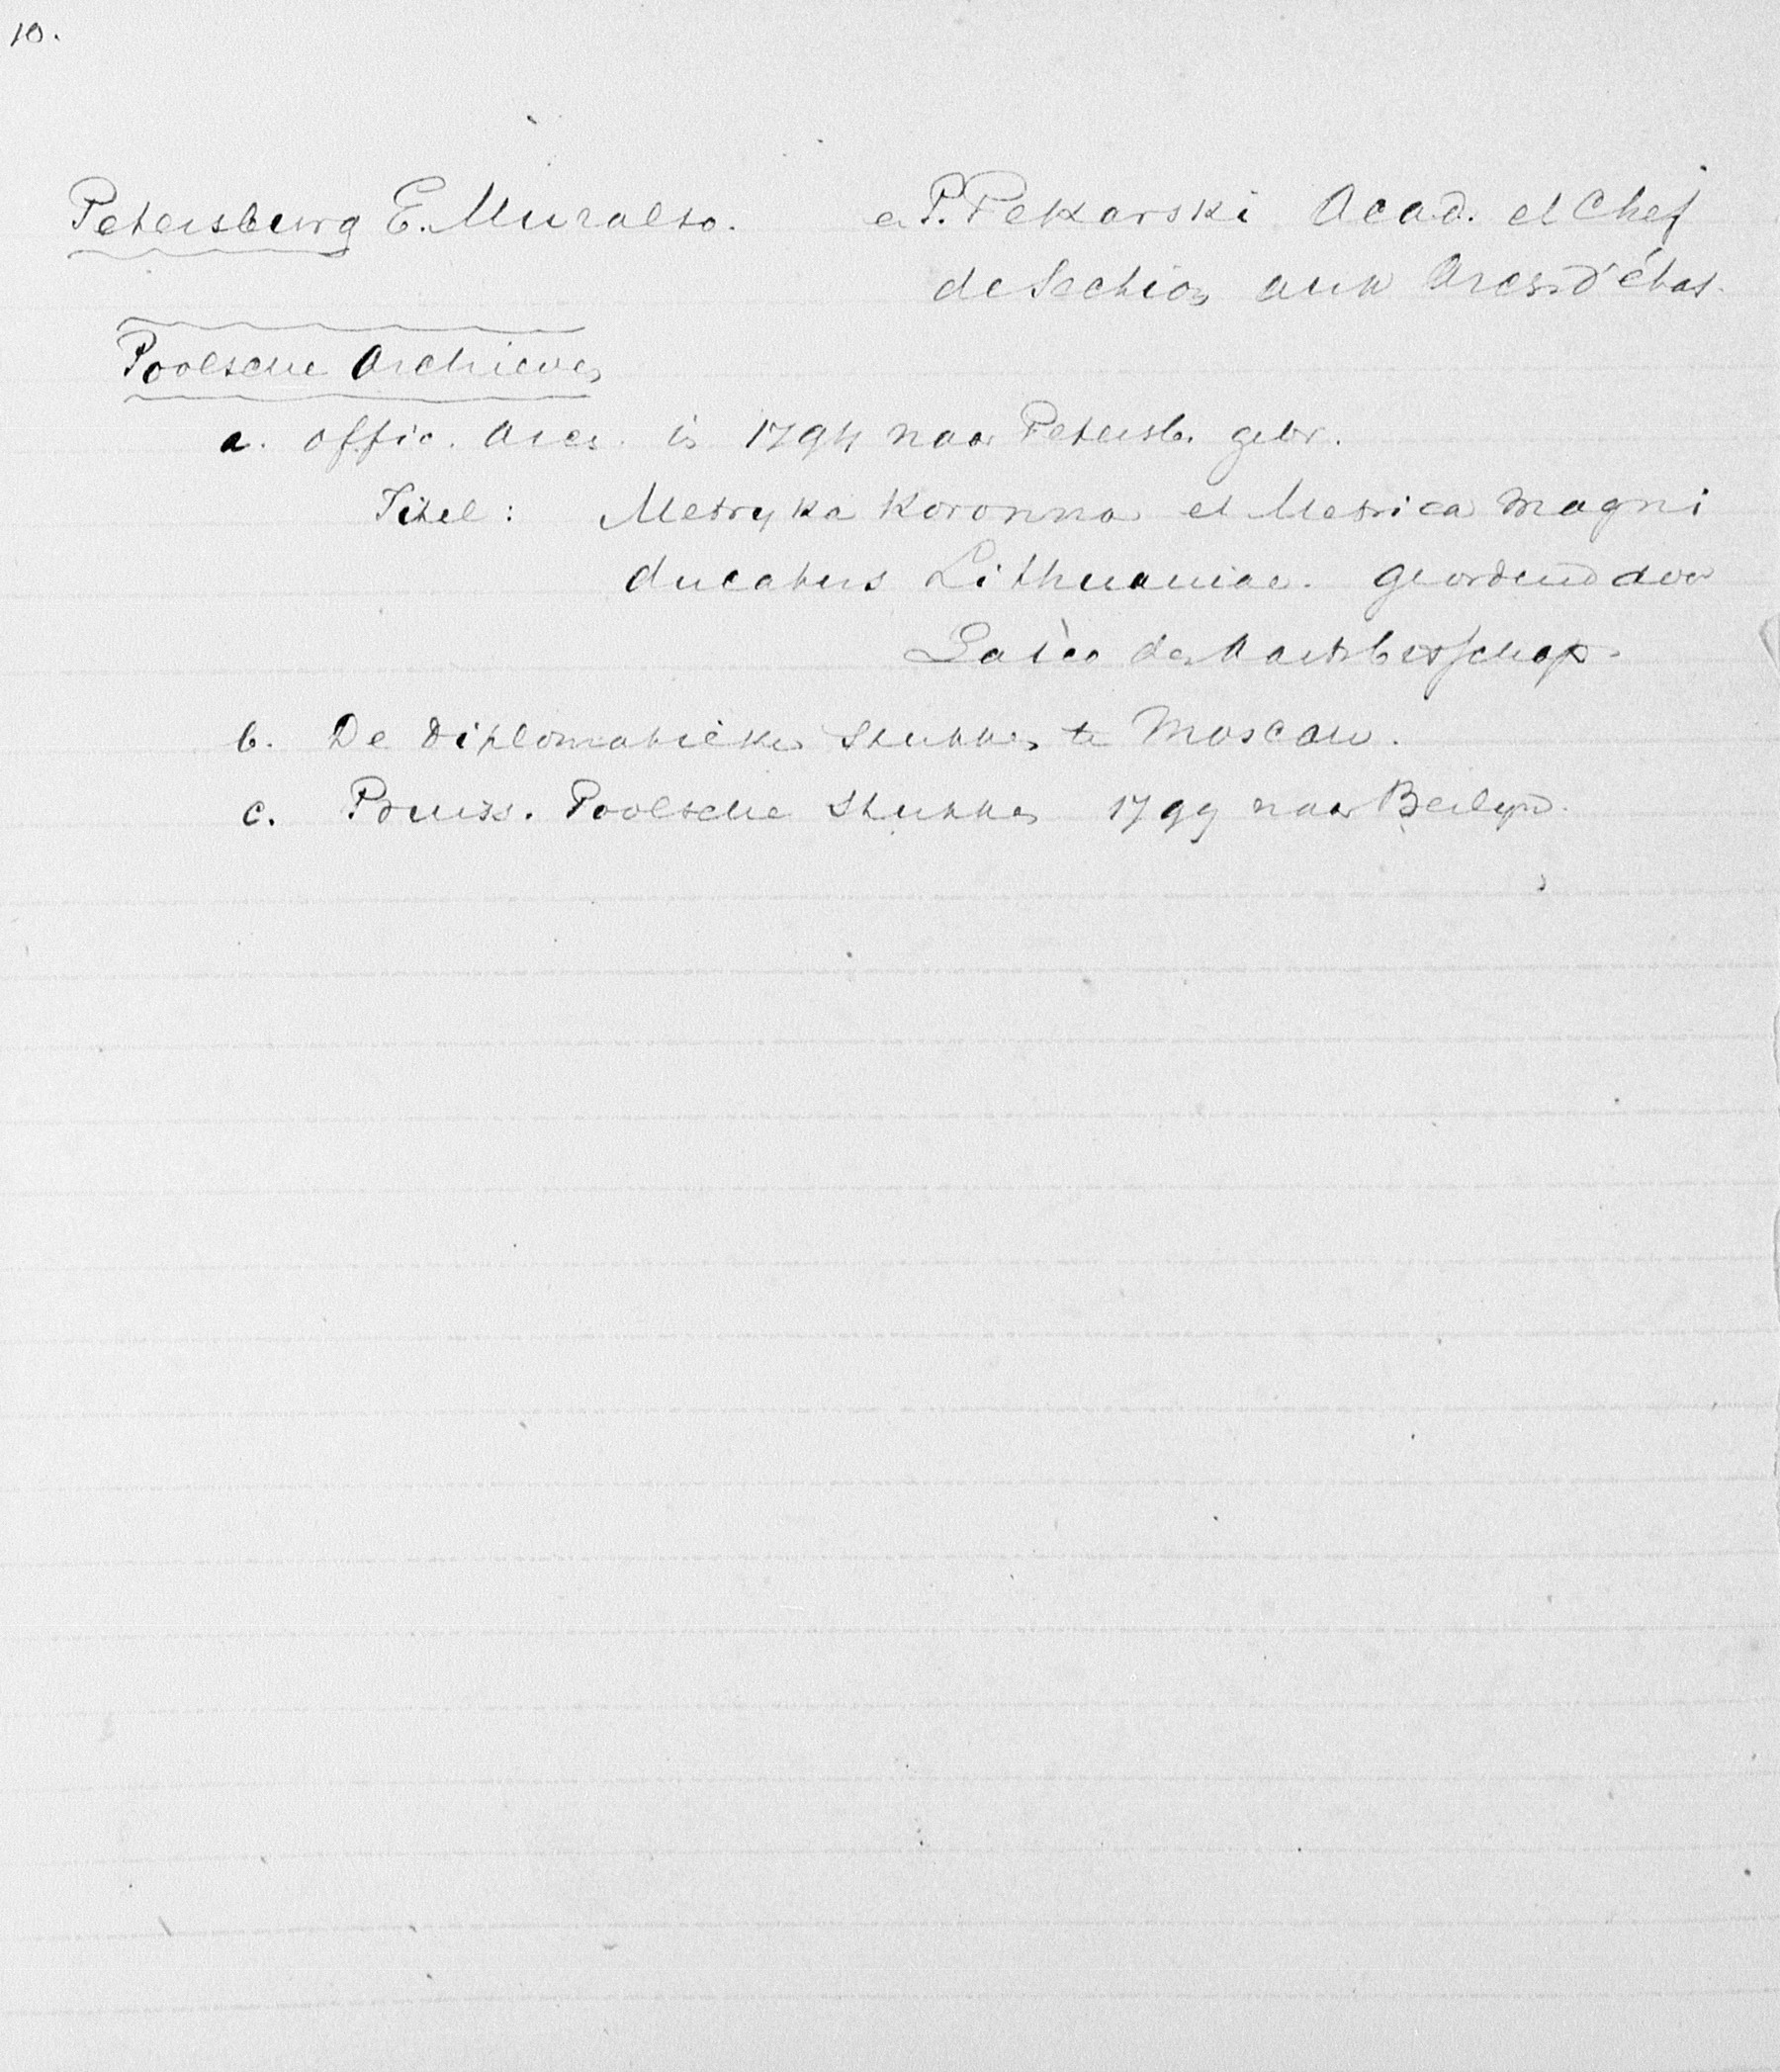 10.
Petersburg E. Muralto. en P. Pekarski Acad. et Chef
de Section aux Arch. d'état.
Poolsche Archieven
a. offic. Arch. is 1794 naar Petersb. gebr.
Titel: Metryka Koronna et Metrica Magni
ducatus Lithuaniae. geordend door
b. De diplomatieke stukken te Moscau.
c. Pruiss. Poolsche stukken 1799 naar Berlijn.